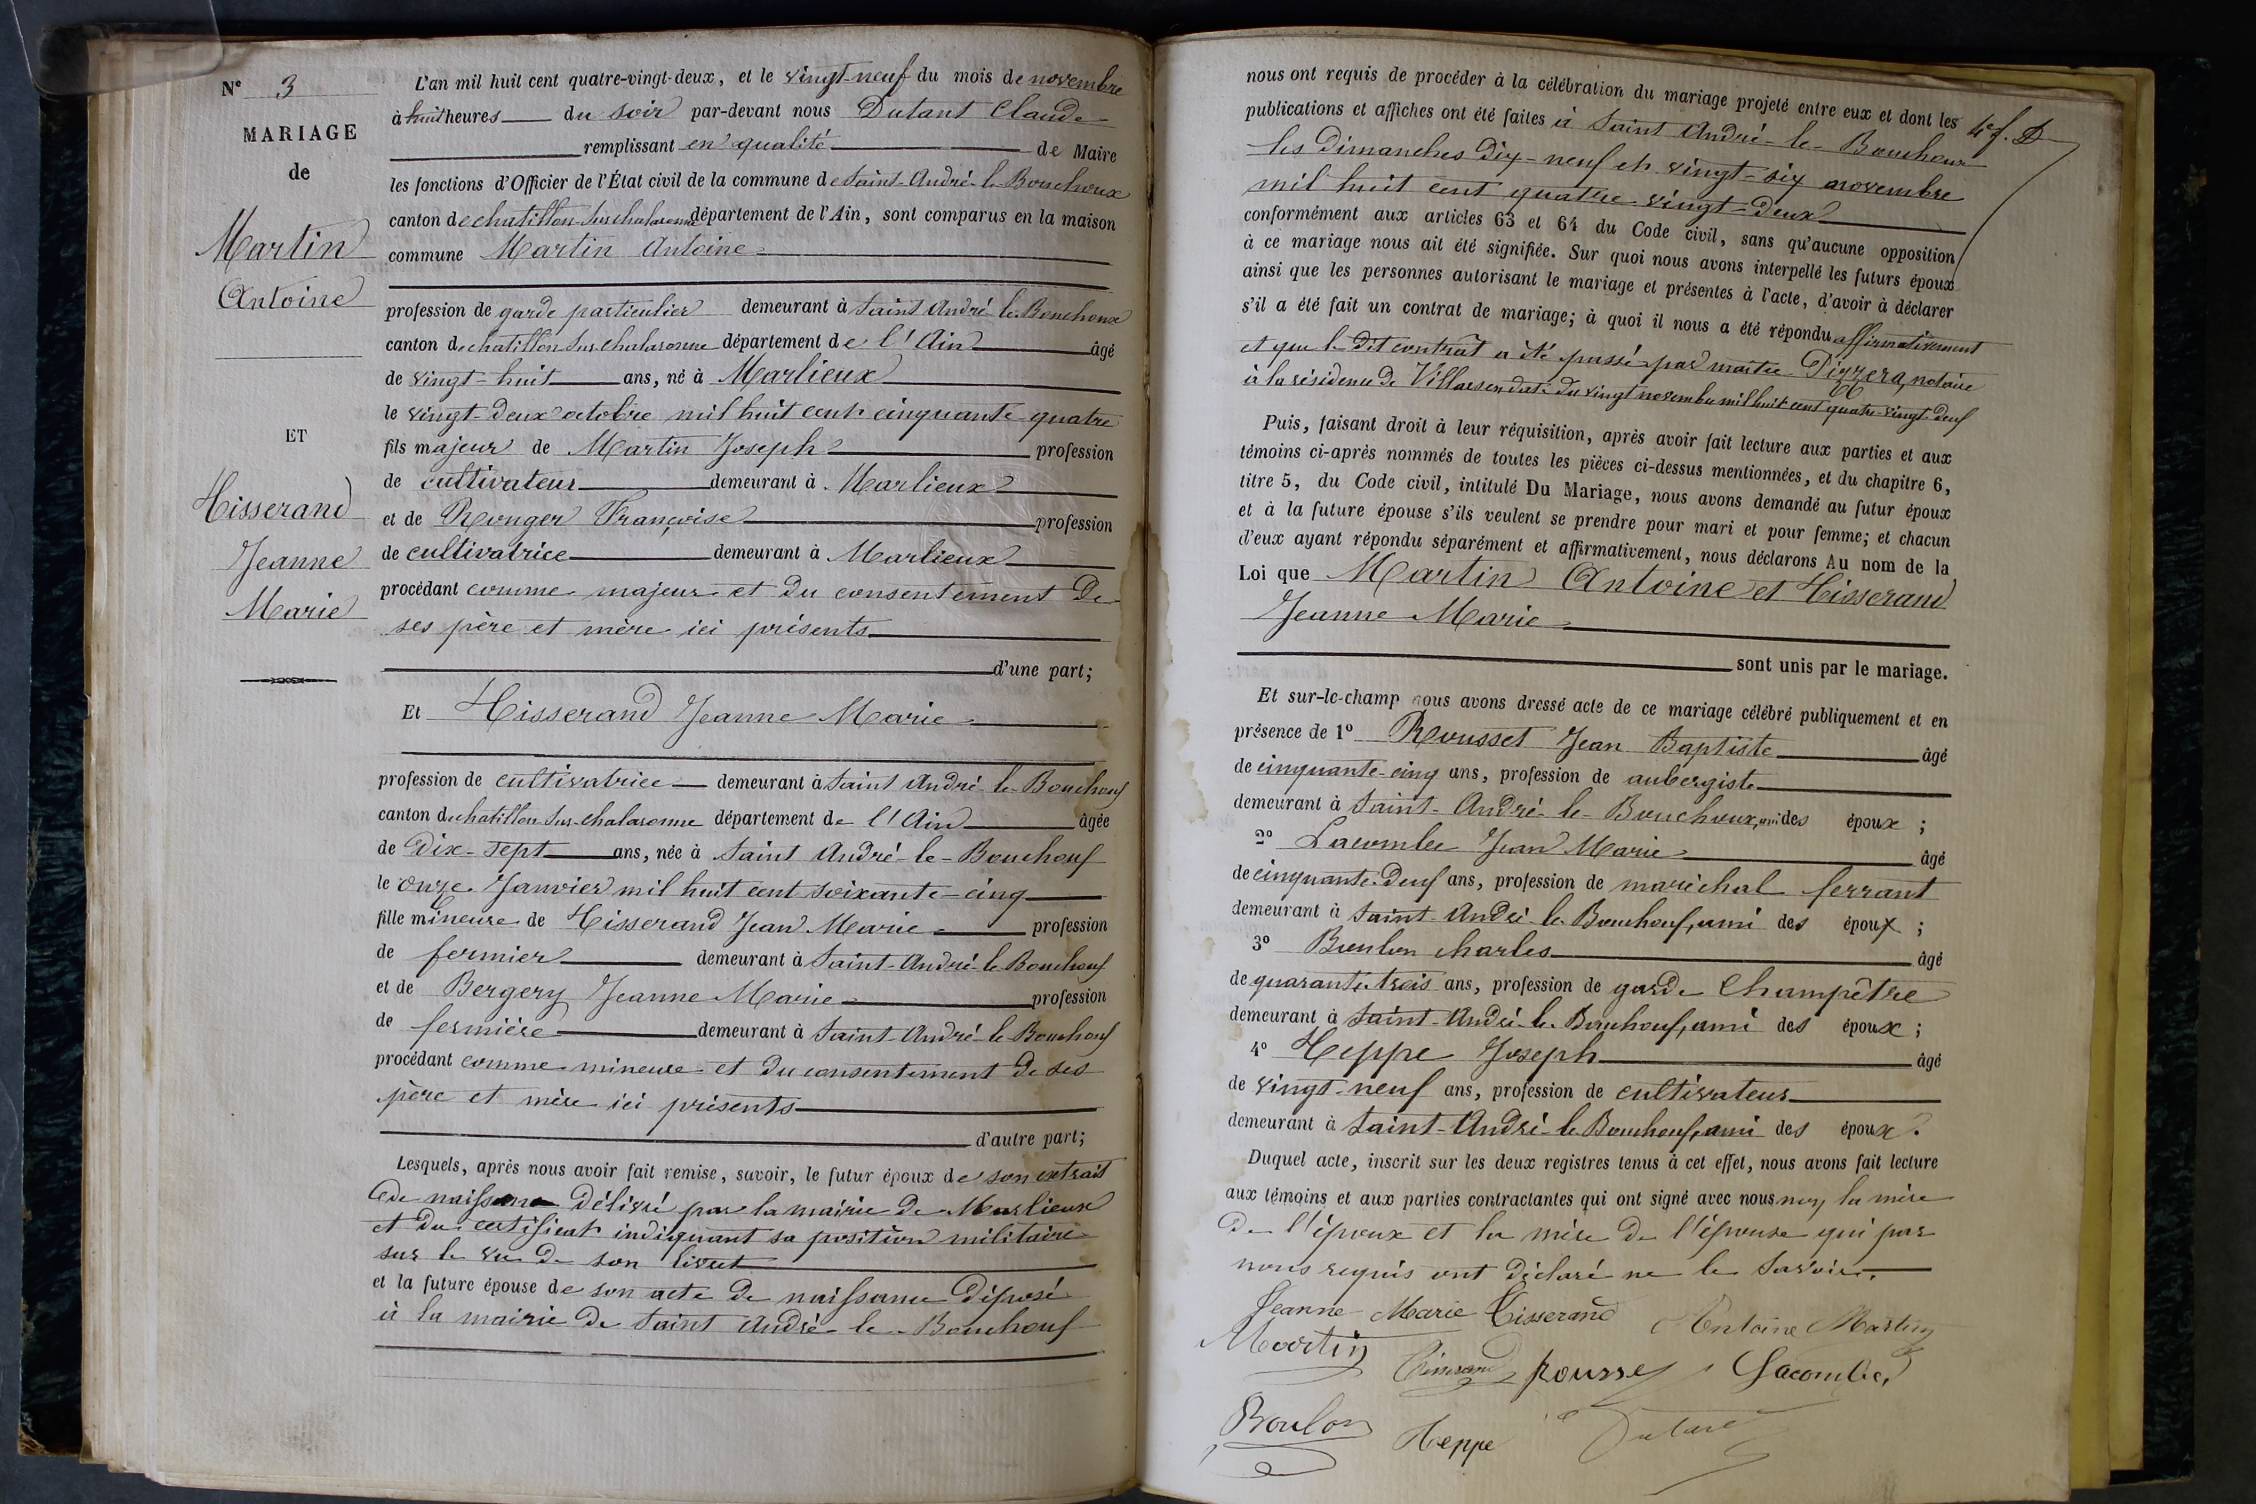 N° 3
MARIAGE
de
Martin
Antoine
ET
Tisserand
Jeanne
Marie
L'an mil huit cent quatre-vingt-deux, et le vingt-neuf du mois de novembre
à huit heures du soir par-devant nous Dutant Claude
remplissant en qualité de Maire
les fonctions d'Officier de l'État civil de la commune de Saint-André-le-Bouchoux
canton de chatillon sur chalaronne département de l'Ain, sont comparus en la maison
commune Martin Antoine
profession de garde particulier demeurant à Saint André-le-Bouchoux
canton de chatillon sur chalaronne département de l'Ain âgé
de vingt-huit ans, né à Marlieux
le vingt-deux octobre mil huit cent cinquante-quatre
fils majeur de Martin Joseph profession
de cultivateur demeurant à Marlieux
et de Rouger Françoise profession
de cultivatrice demeurant à Marlieux
procédant comme majeur et du consentement de
ses père et mère ici présents
d'une part;
Et Tisserand Jeanne Marie
profession de cultivatrice demeurant à Saint André-le-Bouchoux
canton de chatillon-sur-chalaronne département de l'Ain âgée
de Dix-sept ans, née à Saint André-le-Bouchoux
le onze Janvier mil huit cent soixante-cinq
fille mineure de Tisserand Jean Marie profession
de fermier demeurant à Saint-André-le-Bouchoux
et de Bergery Jeanne Marie profession
de fermière demeurant à Saint-André-le-Bouchoux
procédant comme mineure et du consentement de ses
père et mère ici présents
d'autre part;
Lesquels, après nous avoir fait remise, savoir, le futur époux de son extrait
de naissance délivré par la mairie de Marlieux
et du certificat indiquant sa position militaire
sur le vu de son livret
et la future épouse de son acte de naissance déposé
à la mairie de Saint André-le-Bouchoux
nous ont requis de procéder à la célébration du mariage projeté entre eux et dont les
publications et affiches ont été faites à Saint André-le-Bouchoux
les dimanches dix-neuf et vingt-six novembre
mil huit cent quatre-vingt-deux
conformément aux articles 63 et 64 du Code civil, sans qu'aucune opposition
à ce mariage nous ait été signifiée. Sur quoi nous avons interpellé les futurs époux
ainsi que les personnes autorisant le mariage et présentes à l'acte, d'avoir à déclarer
s'il a été fait un contrat de mariage; à quoi il nous a été répondu affirmativement
et que le dit contrat a été passé par maître Pizzera, notaire
à la résidence de Villars en date du vingt novembre mil huit cent quatre-vingt-deux
Puis, faisant droit à leur réquisition, après avoir fait lecture aux parties et aux
témoins ci-après nommés de toutes les pièces ci-dessus mentionnées, et du chapitre 6,
titre 5, du Code civil, intitulé Du Mariage, nous avons demandé au futur époux
et à la future épouse s'ils veulent se prendre pour mari et pour femme; et chacun
d'eux ayant répondu séparément et affirmativement, nous déclarons Au nom de la
Loi que Martin Antoine et Tisserand
Jeanne Marie
sont unis par le mariage.
Et sur-le-champ nous avons dressé acte de ce mariage célébré publiquement et en
présence de 1° Rousset Jean Baptiste âgé
de cinquante-cinq ans, profession de aubergiste
demeurant à Saint-André-le-Bouchoux, ami des époux;
2° Lacombe Jean Marie âgé
de cinquante-deux ans, profession de maréchal ferrant
demeurant à Saint-André-le-Bouchoux, ami des époux;
3° Boulon charles âgé
de quarante-trois ans, profession de garde champêtre
demeurant à Saint-André-le-Bouchoux, ami des époux;
4° Heppe Joseph âgé
de vingt-neuf ans, profession de cultivateur
demeurant à Saint-André-le-Bouchoux, ami des époux.
Duquel acte, inscrit sur les deux registres tenus à cet effet, nous avons fait lecture
aux témoins et aux parties contractantes qui ont signé avec nous, non la mère
de l'époux et la mère de l'épouse qui par
nous requis ont déclaré ne le savoir.
Jeanne-Marie Tisserand Antoine Martin
Martin Tisserand Rousset Lacombe
Boulon Heppe Dutant